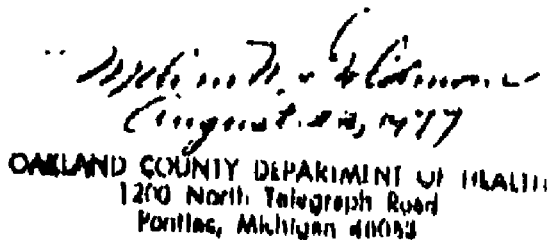 August 22, 1977
OAKLAND COUNTY DEPARTMENT OF HEALTH
1200 North Telegraph Road
Pontiac, Michigan 48053